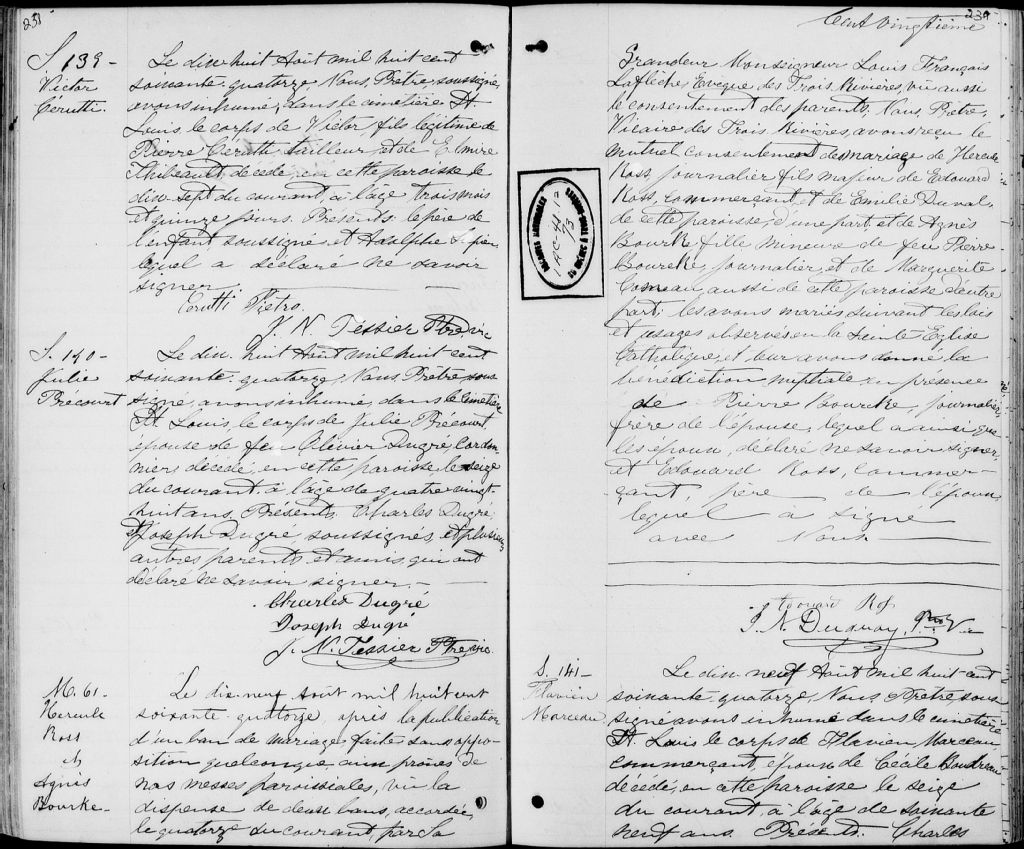 238
S. 139 –
Victor
Cerutti.
Le dix huit Août mil huit cent
soixante-quatorze, Nous, Prêtre, soussigné,
avons inhumé, dans le cimetière St.
Louis, le corps de Victor, fils légitime de
Pierre Cerutti, tailleur, et de Elmire
Thibeault, décédé, en cette paroisse le
dix-sept du courant, à l'âge trois mois
et quinze jours. Présents: le père de
l'enfant soussigné et Adolphe
lequel a déclaré ne savoir
signer.
Cerutti Pietro.
J. N. Tessier Ptre, vic.
S. 140 –
Julie
Précourt
Le dix-huit Août mil huit cent
soixante-quatorze, Nous, Prêtre, sous
signé, avons inhumé, dans le cimetière
St. Louis, le corps de Julie Précourt,
épouse de feu Olivier Dugré, Cordon
nier, décédé, en cette paroisse, le seize
du courant, à l'âge de quatre-vingt-
huit ans. Présents: Charles Dugré
et Joseph Dugré, soussignés, et plusieurs
autres parents et amis, qui ont
déclaré ne savoir signer. –
Charles Dugré
Joseph Dugré
J. N. Tessier Ptre, vic.
M. 61 –
Hercule
Ross
&
Agnès
Bourke –
Le dix-neuf Août mil huit cent
soixante-quatorze, après la publication
d'un ban de mariage, faite sans oppo-
sition quelconque aux prônes de
nos messes paroissiales, vu la
dispense de deux bans, accordée,
le quatorze du courant, par Sa
239
Cent vingtième
Grandeur Monseigneur Louis François
Laflèche, Evêque des Trois Rivières, vu aussi
le consentement des parents, Nous, Prêtre,
Vicaire des Trois Rivières, avons reçu le
mutuel consentement de mariage de Hercule
Ross, journalier, fils majeur de Edouard
Ross, commerçant, et de Emilie Duval,
de cette paroisse, d'une part, et de Agnès
Bourke, fille mineure de feu Pierre
Bourcke, journalier, et de Marguerite
Comeau, aussi de cette paroisse d'autre
part; les avons mariés suivant les lois
et usages observés en la Sainte Eglise
Catholique, et leur avons donné la
bénédiction nuptiale en présence
de Pierre Bourcke, journalier,
frère de l'épouse, lequel a ainsi que
les époux, déclaré ne savoir signer,
et Edouard Ross, commer-
çant, père de l'époux,
lequel a signé
avec Nous.
Edouard Ross
J. N. Duguay, Ptre Vic
S. 141 –
Flavien
Marceau
Le dix-neuf Août mil huit cent
soixante-quatorze, Nous, Prêtre, sous
signé avons inhumé dans le cimetière
St. Louis le corps de Flavien Marceau,
commerçant, époux de Cécile Boudreau
décédé, en cette paroisse le seize
du courant, à l'âge de soixante
neuf ans. Présents: Charles